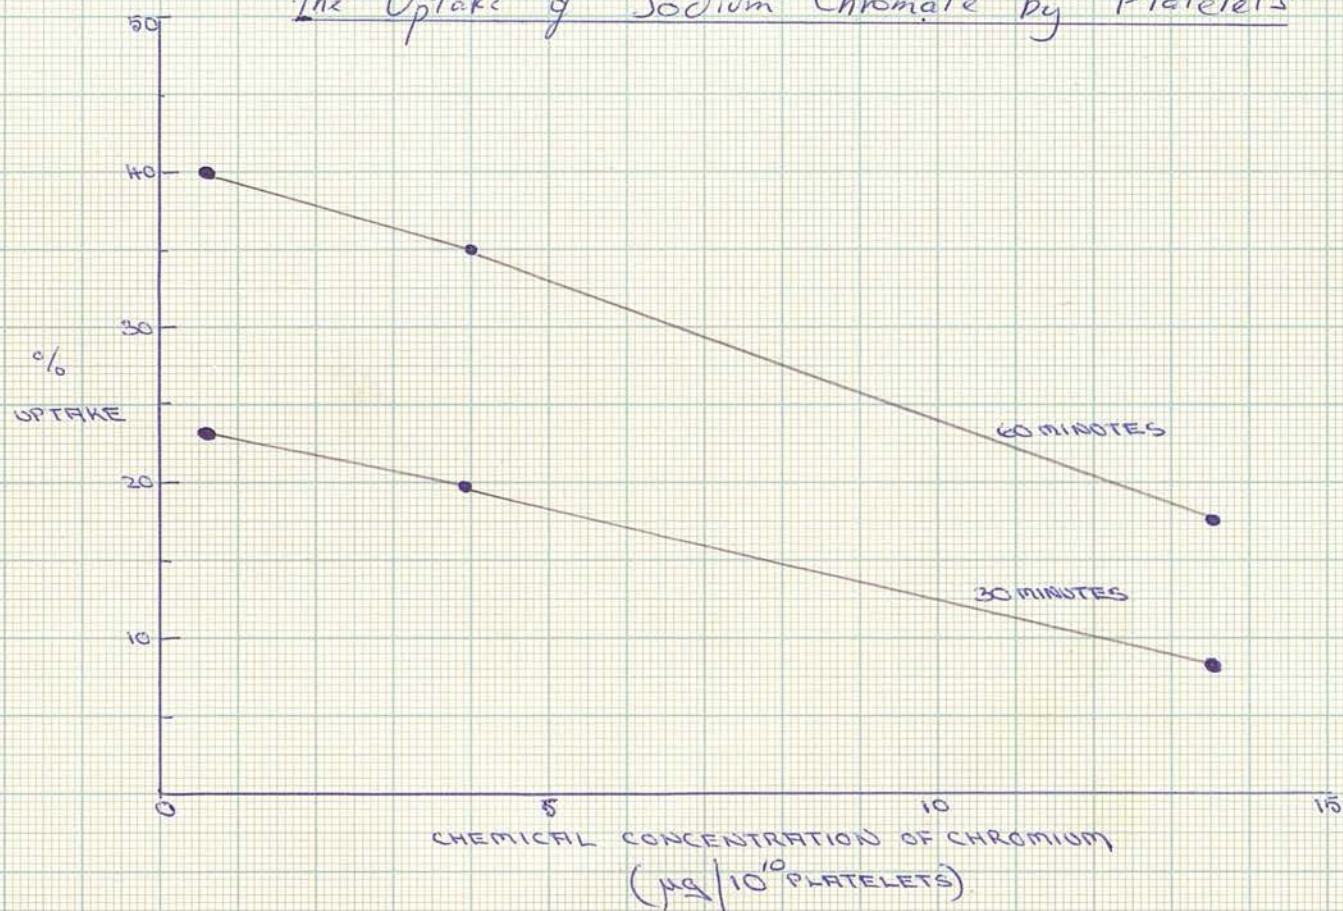 The Uptake of Sodium Chromate by Platelets
50
40
30
%
UPTAKE
60 MINUTES
20
30 MINUTES
10
0 5 10 15
CHEMICAL CONCENTRATION OF CHROMIUM
(µg/10¹⁰ PLATELETS)